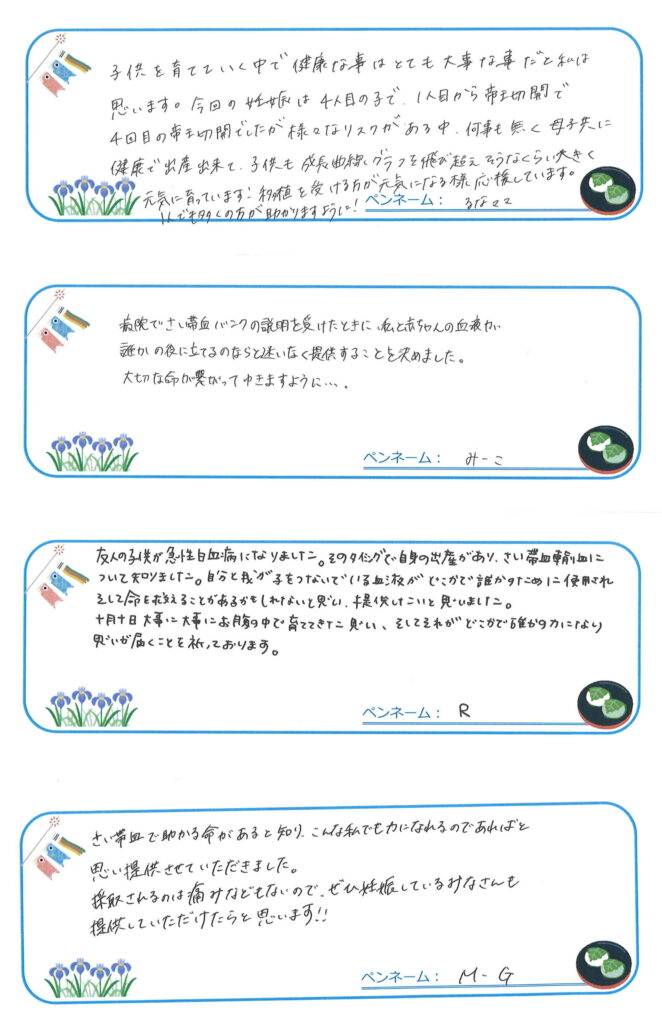 子供を育てていく中で健康な事はとても大事な事だと私は
思います。今回の妊娠は4人目の子で、1人目から帝王切開で
4回目の帝王切開でしたが様々なリスクがある中、何事も無く母子共に
健康で出産出来て、子供も成長曲線グラフを飛び超えそうなくらい大きく
元気に育っています！移植を受ける方が元気になる様応援しています。
1人でも多くの方が助かりますように！
ペンネーム：るなママ
病院でさい帯血バンクの説明を受けたときに、私と赤ちゃんの血液が
誰かの役に立てるのならと迷いなく提供することを決めました。
大切な命が繋がってゆきますように…。
ペンネーム：みーこ
友人の子供が急性白血病になりました。そのタイミングで自身の出産があり、さい帯血輸血に
ついて知りました。自分と我が子をつないでいる血液がどこかで誰かのために使用され
そして命を救えることがあるかもしれないと思い、提供したいと思いました。
十月十日大事に大事にお腹の中で育ててきた思い、そしてそれがどこかで誰かの力になり
思いが届くことを祈っております。
ペンネーム：R
さい帯血で助かる命があると知り、こんな私でも力になれるのであればと
思い提供させていただきました。
採取されるのは痛みなどもないので、ぜひ妊娠しているみなさんも
提供していただけたらと思います!!
ペンネーム：M-G